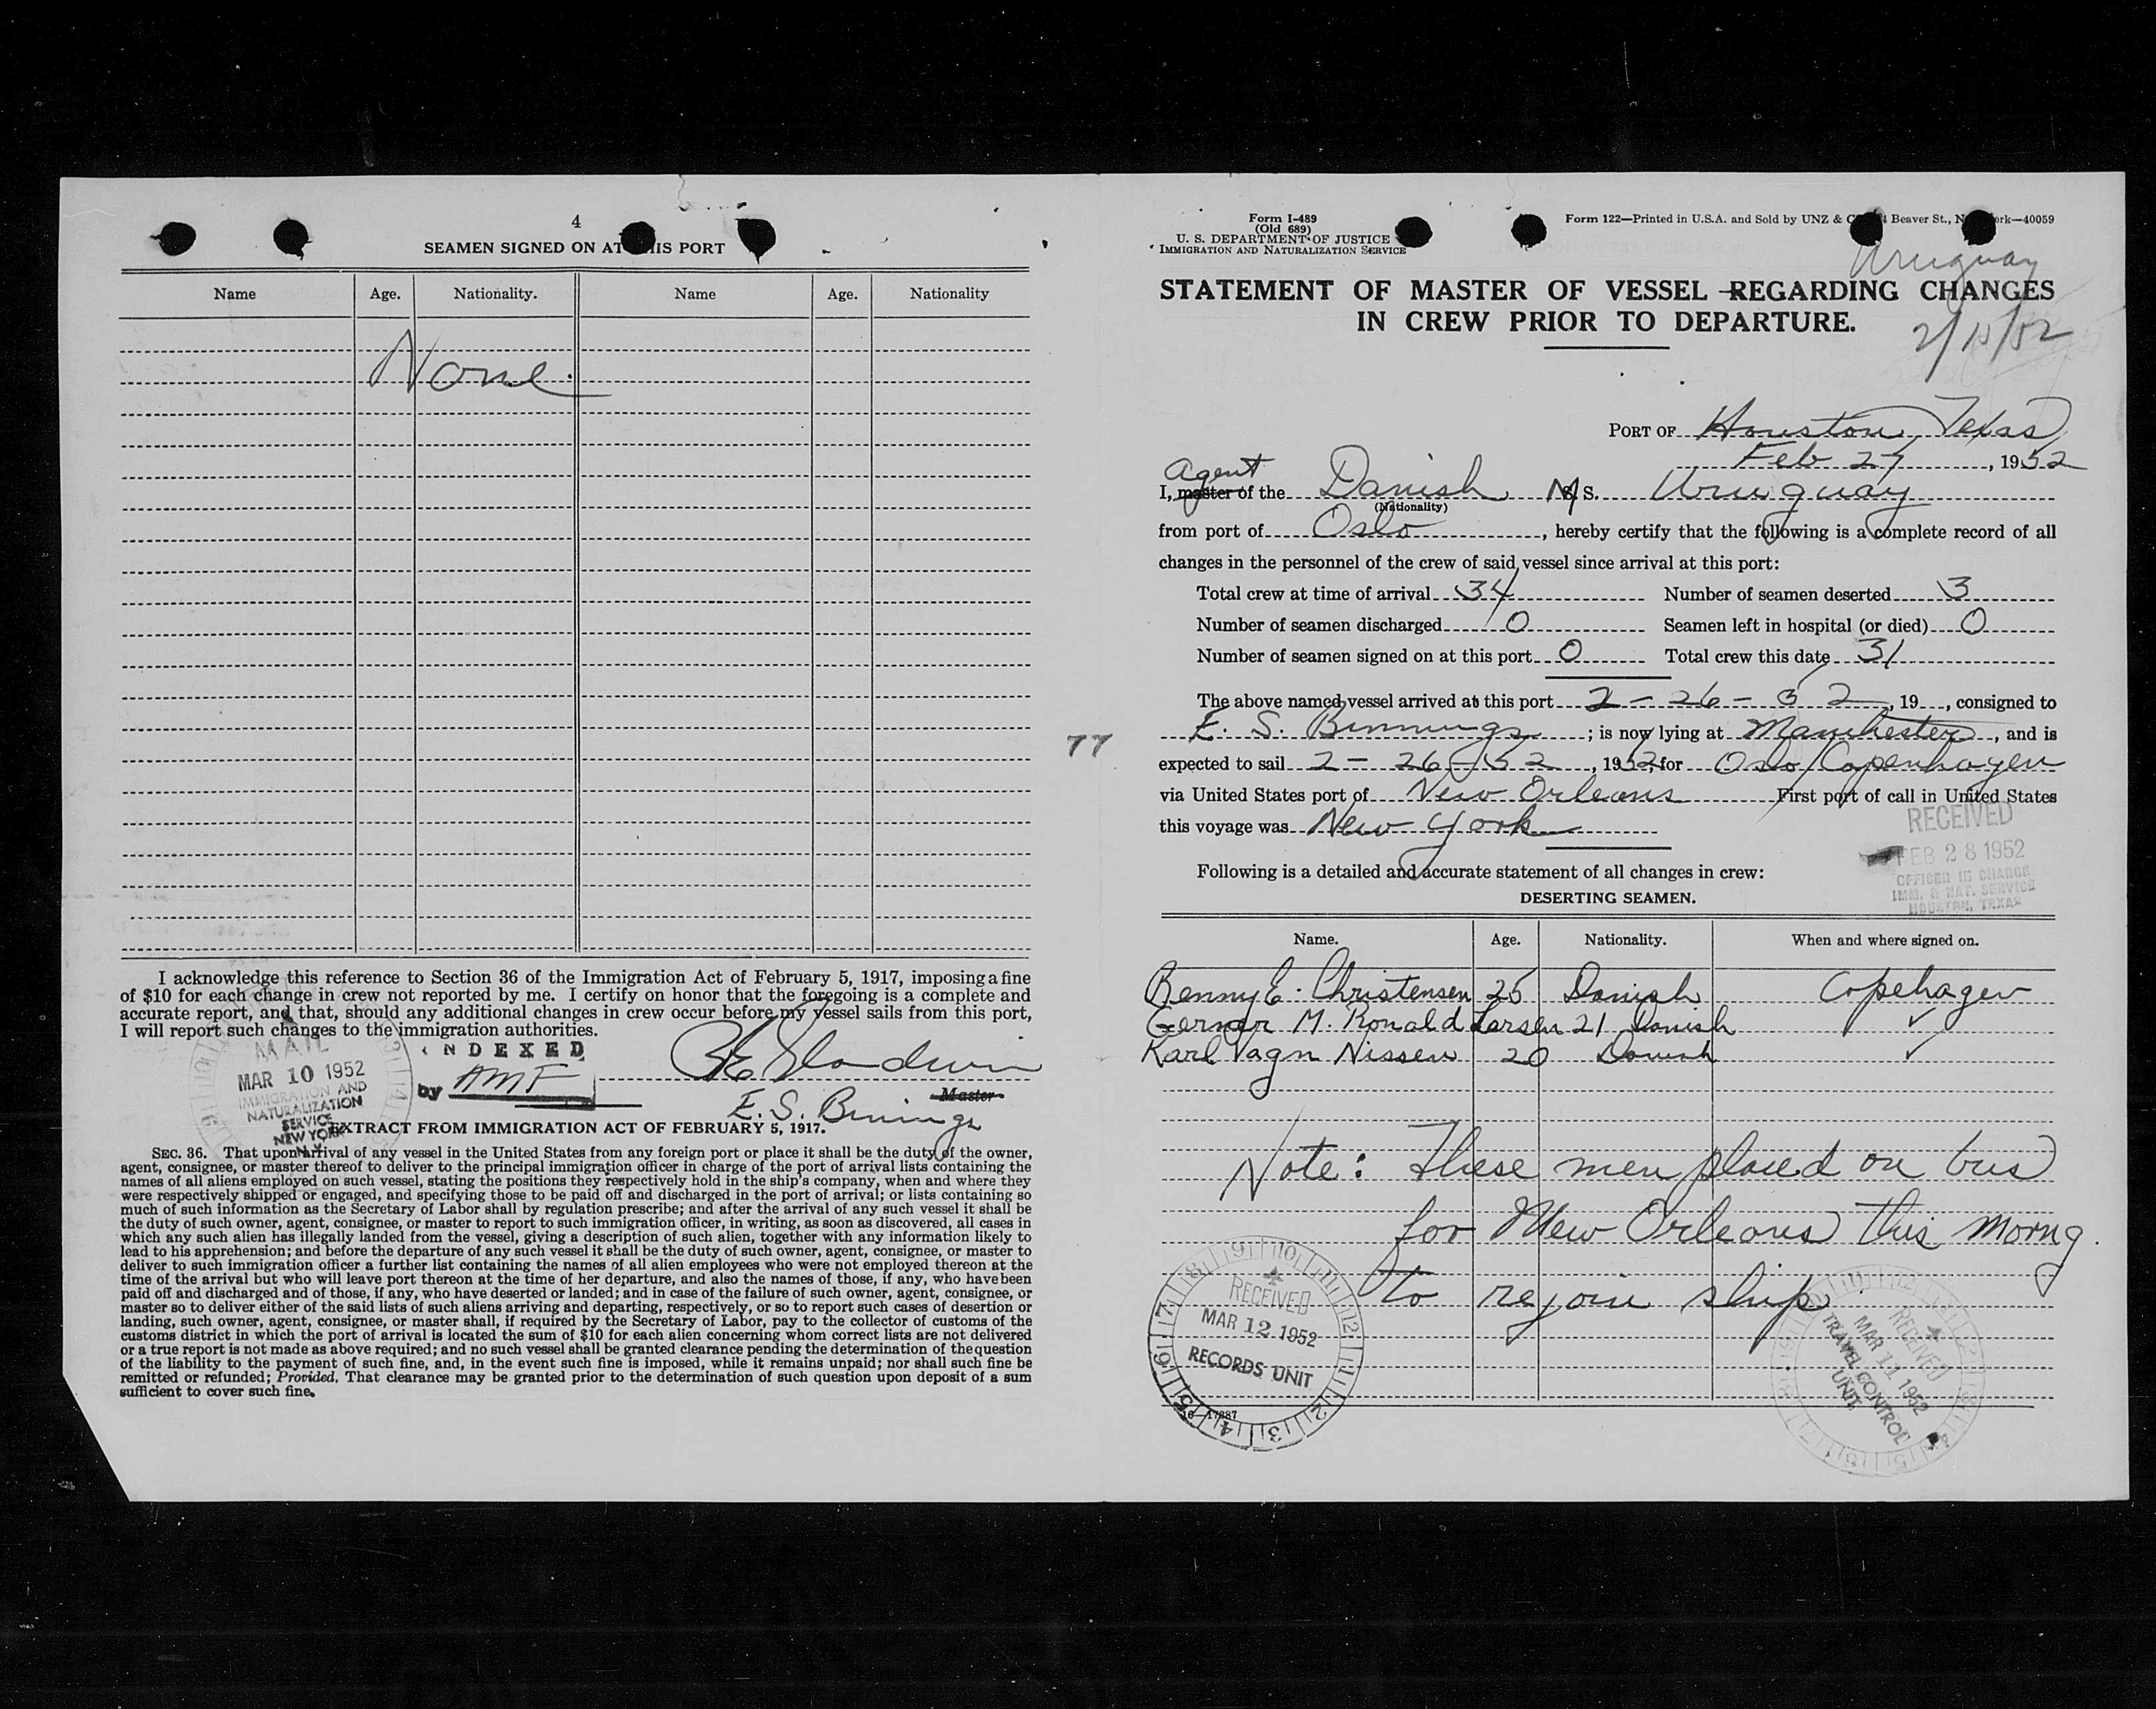 4
SEAMEN SIGNED ON AT THIS PORT
Name Age. Nationality. Name Age. Nationality
None
I acknowledge this reference to Section 36 of the Immigration Act of February 5, 1917, imposing a fine
of $10 for each change in crew not reported by me. I certify on honor that the foregoing is a complete and
accurate report, and that, should any additional changes in crew occur before my vessel sails from this port,
I will report such changes to the immigration authorities.
MAIL
MAR 10 1952
IMMIGRATION AND
NATURALIZATION
SERVICE
NEW YORK
N.Y.
INDEXED
by AMF
Master
E. S. Binnings
EXTRACT FROM IMMIGRATION ACT OF FEBRUARY 5, 1917.
SEC. 36. That upon arrival of any vessel in the United States from any foreign port or place it shall be the duty of the owner,
agent, consignee, or master thereof to deliver to the principal immigration officer in charge of the port of arrival lists containing the
names of all aliens employed on such vessel, stating the positions they respectively hold in the ship's company, when and where they
were respectively shipped or engaged, and specifying those to be paid off and discharged in the port of arrival; or lists containing so
much of such information as the Secretary of Labor shall by regulation prescribe; and after the arrival of any such vessel it shall be
the duty of such owner, agent, consignee, or master to report to such immigration officer, in writing, as soon as discovered, all cases in
which any such alien has illegally landed from the vessel, giving a description of such alien, together with any information likely to
lead to his apprehension; and before the departure of any such vessel it shall be the duty of such owner, agent, consignee, or master to
deliver to such immigration officer a further list containing the names of all alien employees who were not employed thereon at the
time of the arrival but who will leave port thereon at the time of her departure, and also the names of those, if any, who have been
paid off and discharged and of those, if any, who have deserted or landed; and in case of the failure of such owner, agent, consignee, or
master so to deliver either of the said lists of such aliens arriving and departing, respectively, or so to report such cases of desertion or
landing, such owner, agent, consignee, or master shall, if required by the Secretary of Labor, pay to the collector of customs of the
customs district in which the port of arrival is located the sum of $10 for each alien concerning whom correct lists are not delivered
or a true report is not made as above required; and no such vessel shall be granted clearance pending the determination of the question
of the liability to the payment of such fine, and, in the event such fine is imposed, while it remains unpaid; nor shall such fine be
remitted or refunded; Provided, That clearance may be granted prior to the determination of such question upon deposit of a sum
sufficient to cover such fine.
77
Form I-489
(Old 689)
U. S. DEPARTMENT OF JUSTICE
IMMIGRATION AND NATURALIZATION SERVICE
Form 122—Printed in U.S.A. and Sold by UNZ & Beaver St., N ork—40059
Uruguay
STATEMENT OF MASTER OF VESSEL REGARDING CHANGES
IN CREW PRIOR TO DEPARTURE.
PORT OF Houston, Texas
Feb 27, 1952
Agent
I, master of the Danish M. S. Uruguay
(Nationality)
from port of Oslo, hereby certify that the following is a complete record of all
changes in the personnel of the crew of said vessel since arrival at this port:
Total crew at time of arrival 34 Number of seamen deserted 3
Number of seamen discharged 0 Seamen left in hospital (or died) 0
Number of seamen signed on at this port 0 Total crew this date 31
The above named vessel arrived at this port 2-26-52, 19, consigned to
E. S. Binnings; is now lying at Manchester, and is
expected to sail 2-26-52, 1952, for Oslo/Copenhagen
via United States port of New Orleans First port of call in United States
this voyage was New York
RECEIVED
FEB 28 1952
OFFICER IN CHARGE
IMM. & NAT. SERVICE
HOUSTON, TEXAS
Following is a detailed and accurate statement of all changes in crew:
DESERTING SEAMEN.
Name. Age. Nationality. When and where signed on.
Benny E. Christensen 25 Danish Copehagen
Gerner M. Ronald Larsen 21 Danish ✓
Karl Vagn Nissen 20 Danish ✓
Note: These men placed on bus
for New Orleans this morng.
to rejoin ship
RECEIVED
MAR 12 1952
RECORDS UNIT
16—17887
RECEIVED
MAR 11 1952
TRAVEL CONTROL
UNIT